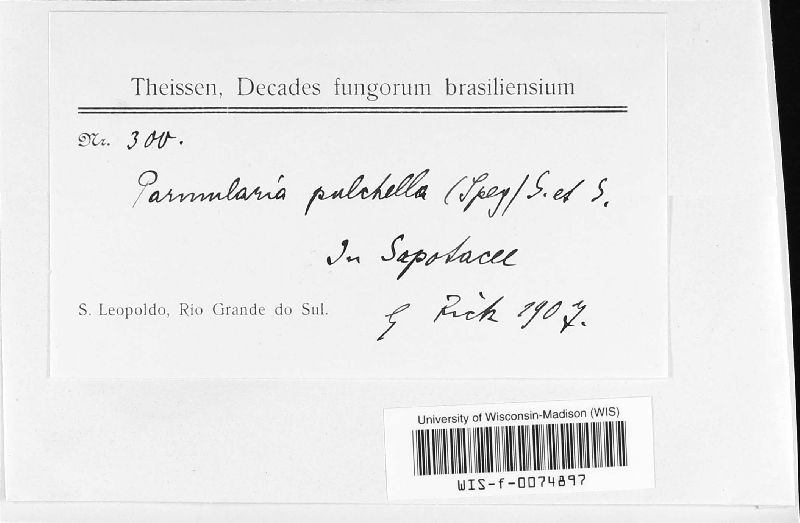 Theissen, Decades fungorum brasiliensium
Nr. 300.
Parmularia pulchella (Speg) S. et S.
In Sapotacee
S. Leopoldo, Rio Grande do Sul.
Rick 1907.
University of Wisconsin-Madison (WIS)
WIS-f-0074897